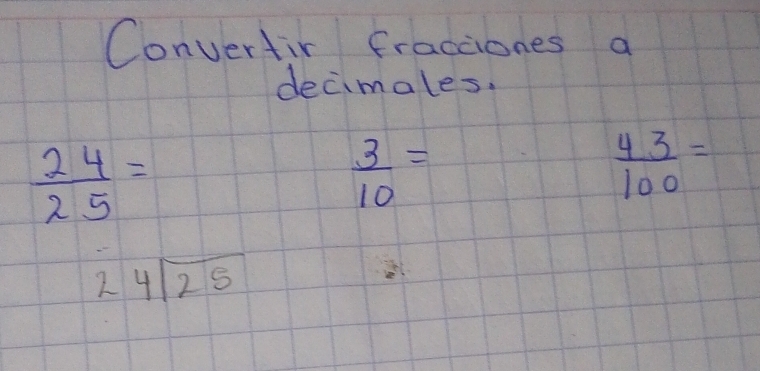 Convertir fracciones a
decimales.
24/25 = 3/10 = 43/100 =
24⟌25